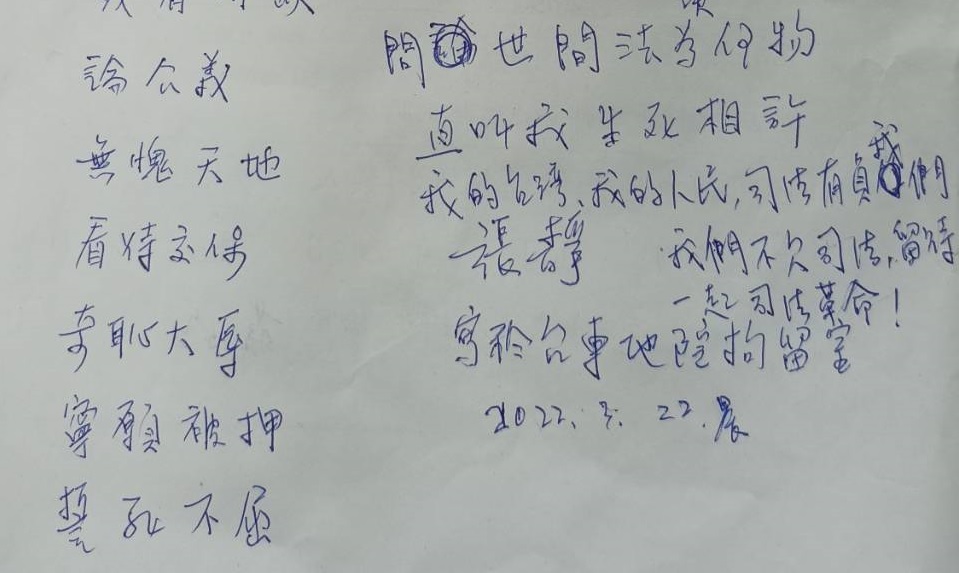 論公義
無愧天地
看待交保
奇恥大辱
寧願被押
誓死不屈
問世間法為何物
直叫我生死相許
我的台灣、我的人民,司法有負我們
張靜
我們不欠司法,留待
一起司法革命!
寫於台東地院拘留室
2022.3.22.晨